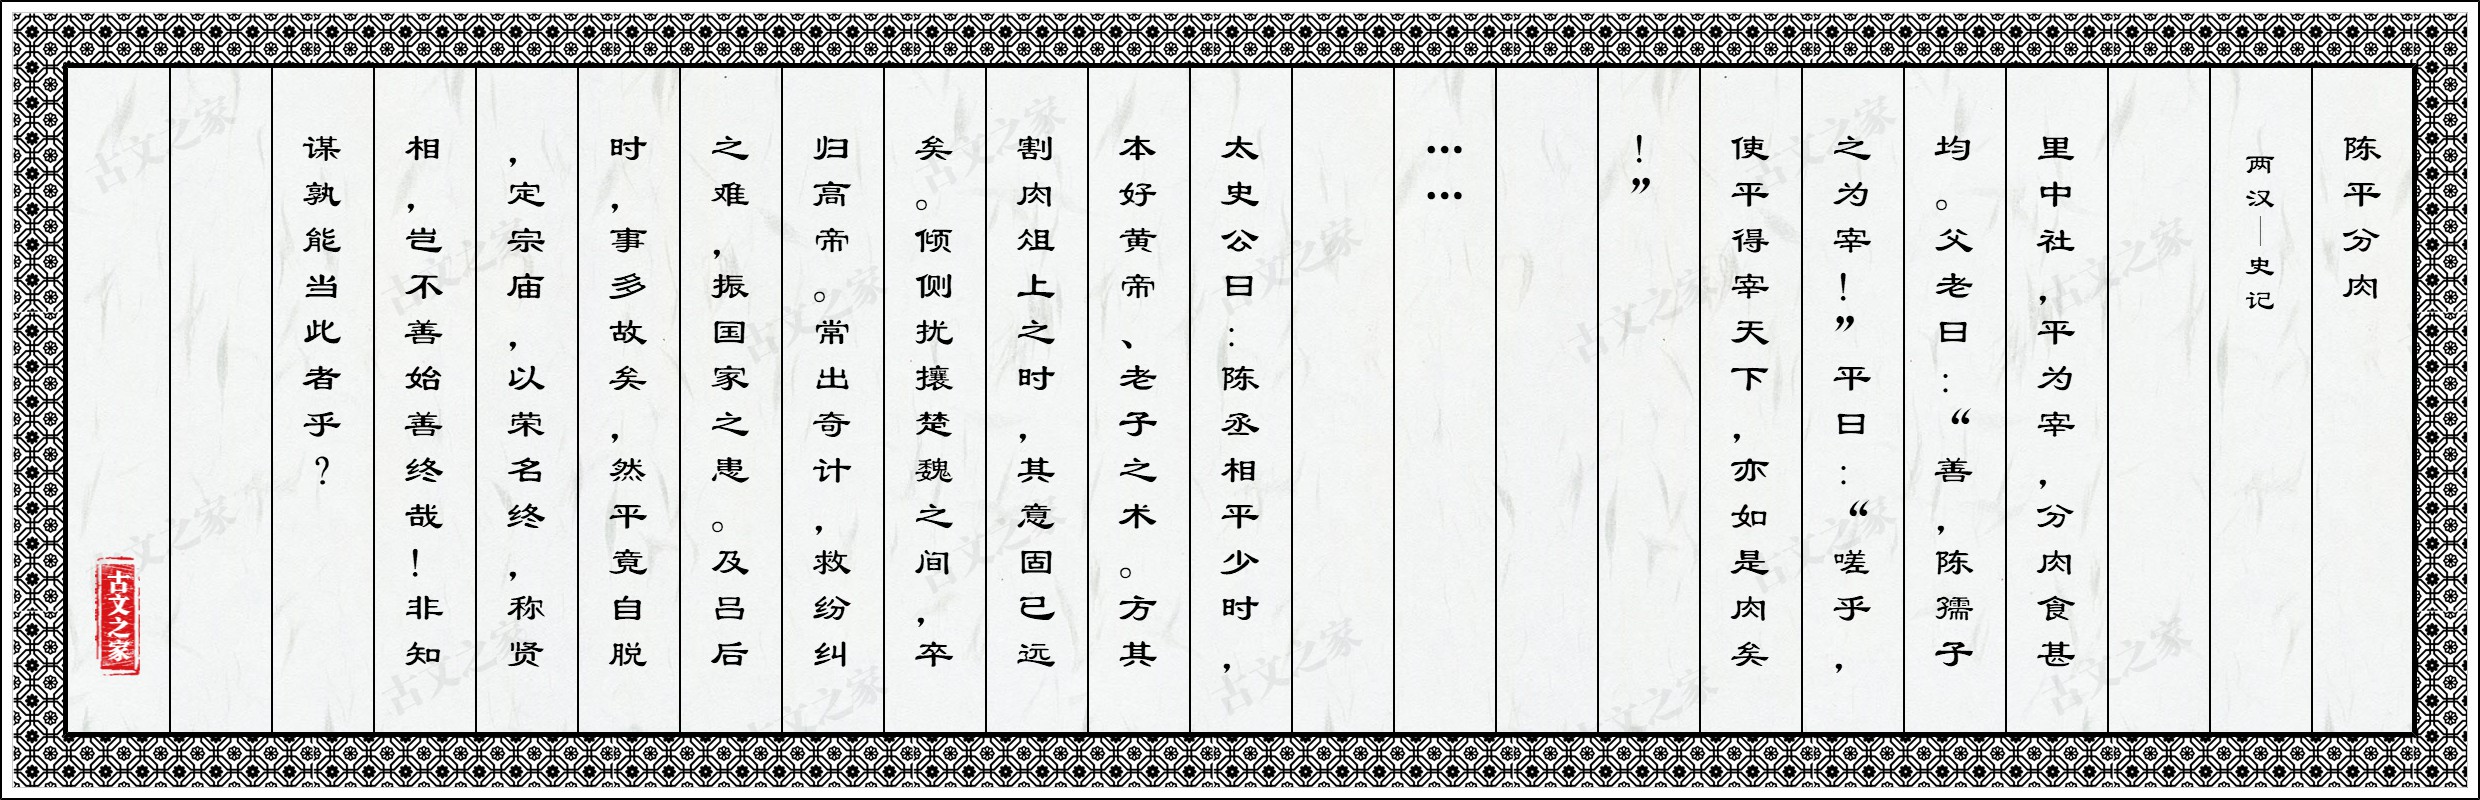 陈平分肉
两汉—史记
里中社，平为宰，分肉食甚
均。父老曰：“善，陈孺子
之为宰！”平曰：“嗟乎，
使平得宰天下，亦如是肉矣
！”
……
太史公曰：陈丞相平少时，
本好黄帝、老子之术。方其
割肉俎上之时，其意固已远
矣。倾侧扰攘楚魏之间，卒
归高帝。常出奇计，救纷纠
之难，振国家之患。及吕后
时，事多故矣，然平竟自脱
，定宗庙，以荣名终，称贤
相，岂不善始善终哉！非知
谋孰能当此者乎？
古文之家